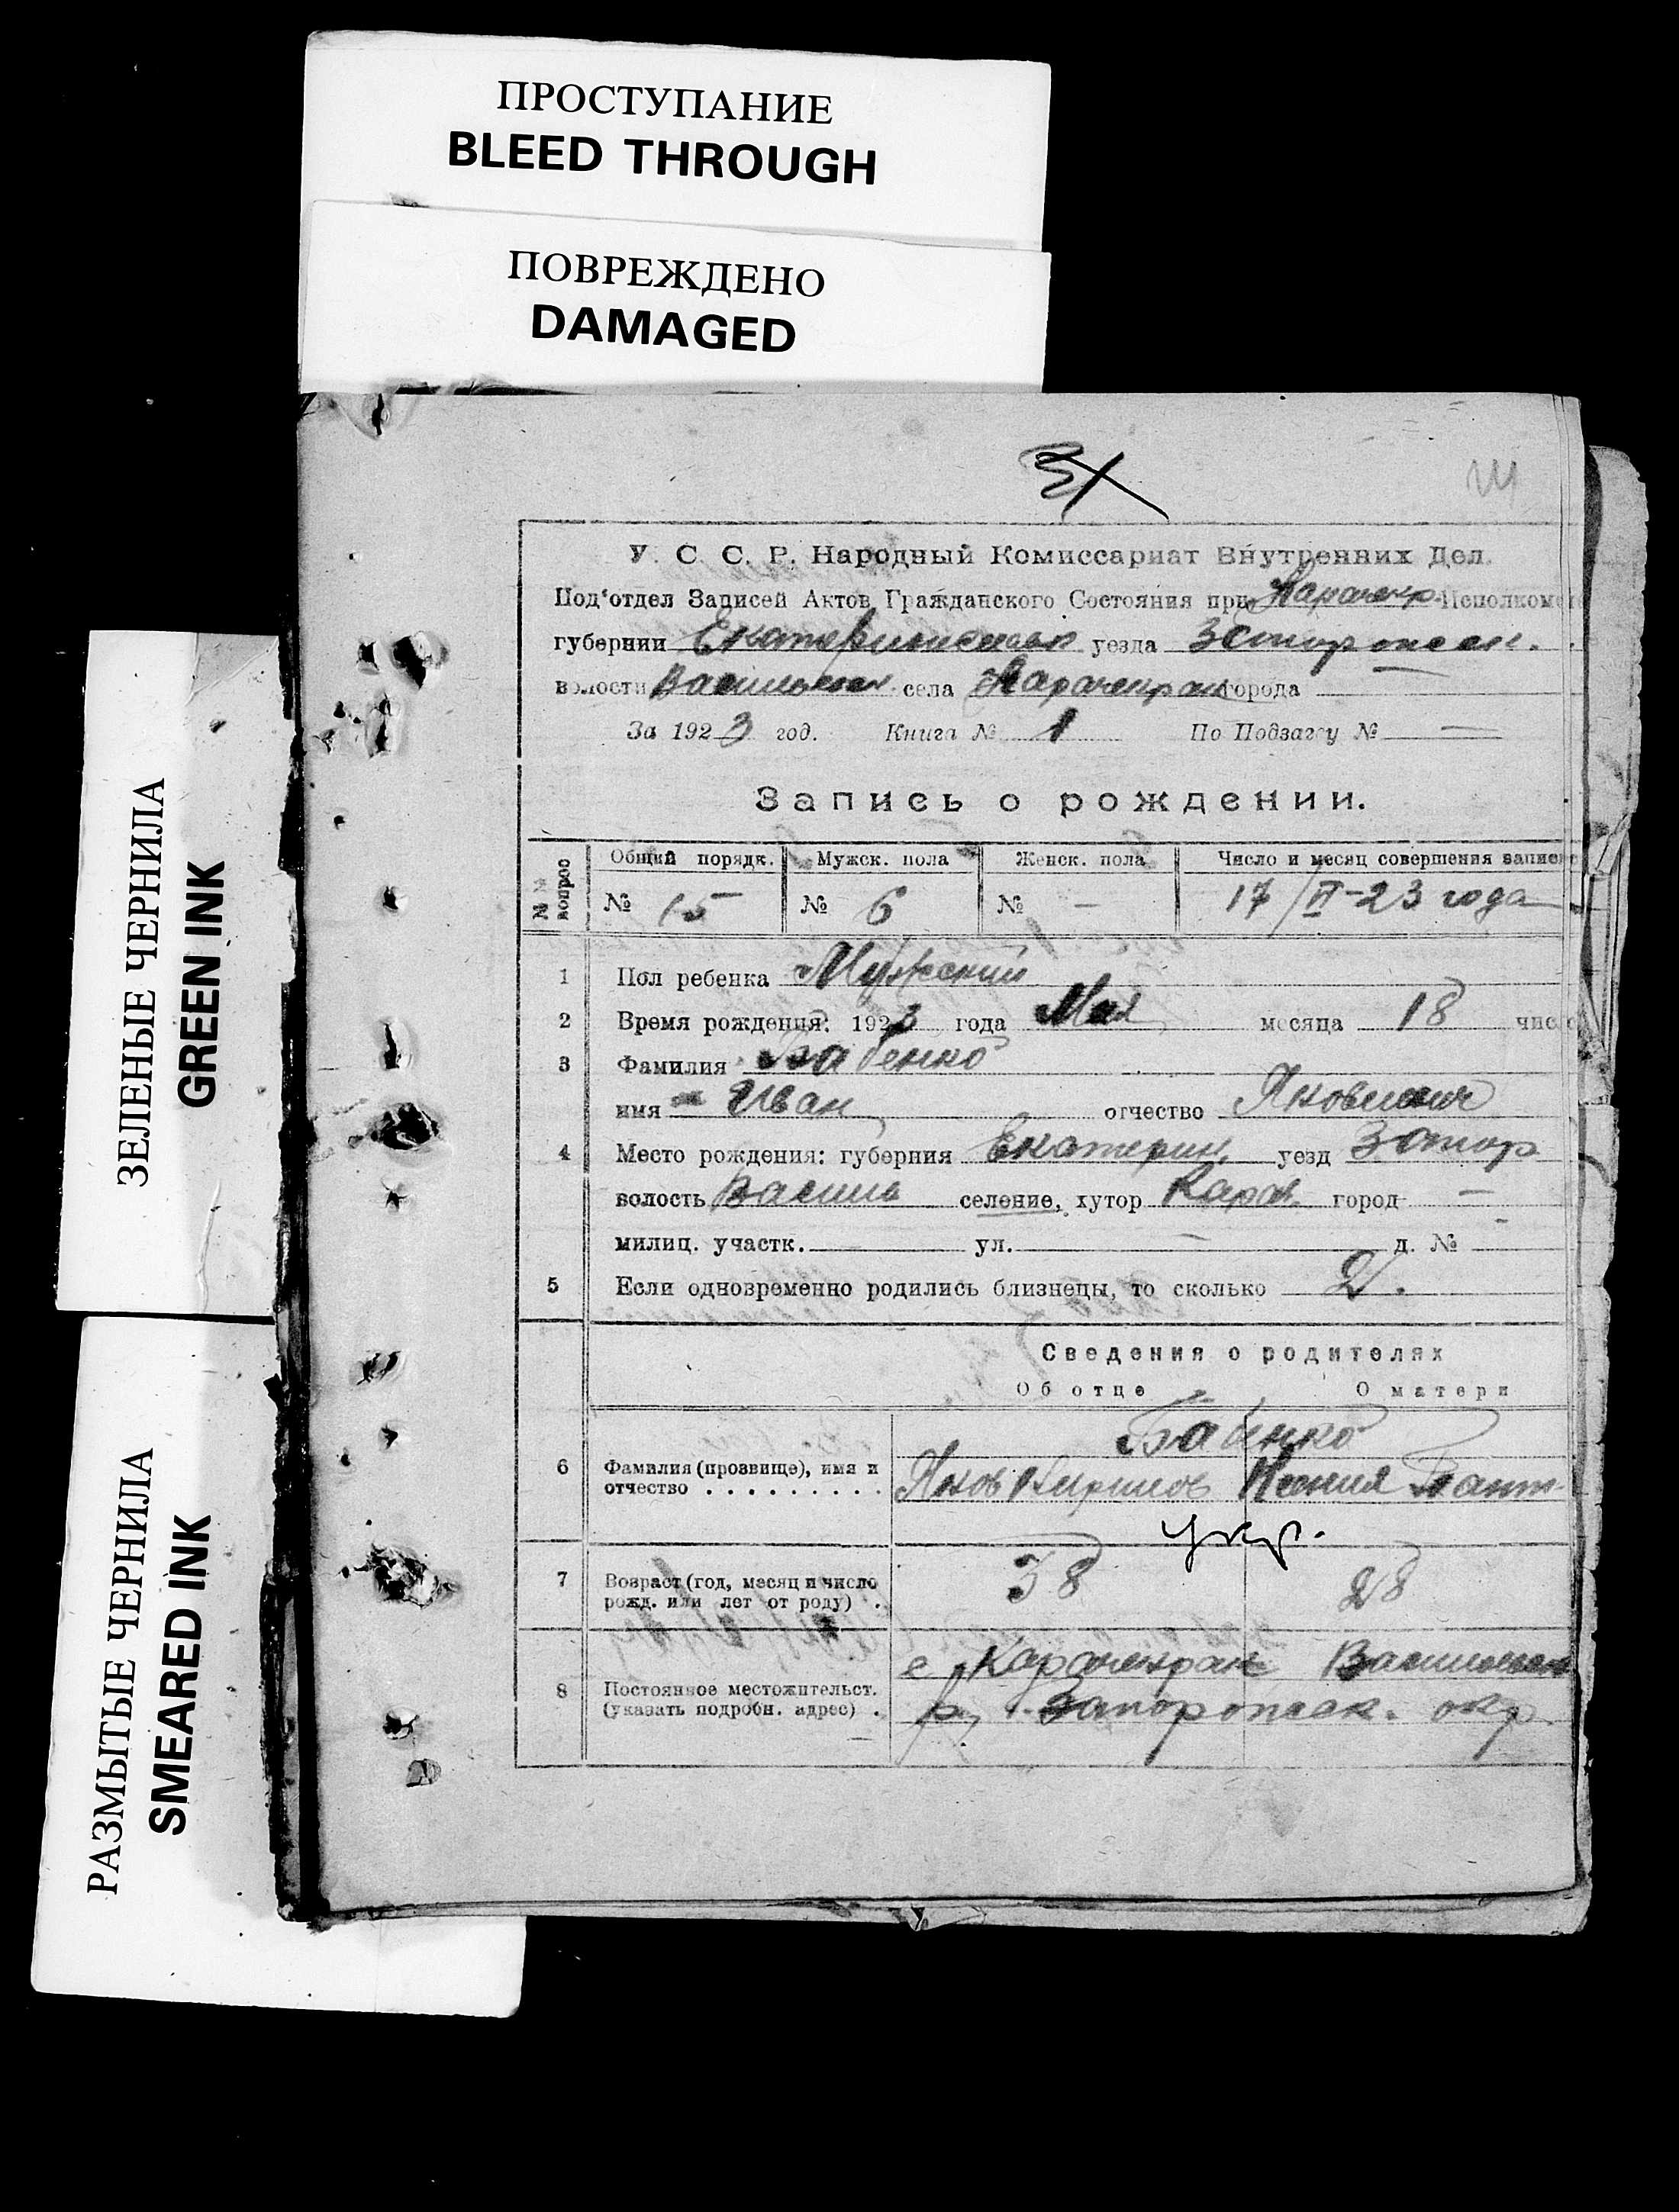 ПРОСТУПАНИЕ
BLEED THROUGH
ПОВРЕЖДЕНО
DAMAGED
ЗЕЛЕНЫЕ ЧЕРНИЛА
GREEN INK
РАЗМЫТЫЕ ЧЕРНИЛА
SMEARED INK
У. С. С. Р. Народный Комиссариат Внутренних Дел.
Под'отдел Записей Актов Гражданского Состояния при Исполкоме
губернии уезда
волости села города —
За 1923 год. Книга № 1 По Подзагсу № —
Запись о рождении.
№№ вопрос
Общий порядк. Мужск. пола Женск. пола Число и месяц совершения записи
№ 15 № 6 № — 17/II-23 года
1 Пол ребенка Мужский
2 Время рождения: 1923 года Мая месяца 18 число
3 Фамилия Бабенко
имя Иван отчество Яковлевич
4 Место рождения: губерния Екатерин. уезд Запор
волость Василь селение, хутор Карач. город —
милиц. участк. — ул. — д. № —
5 Если одновременно родились близнецы, то сколько 2.
Сведения о родителях
Об отце О матери
Бабенко
6 Фамилия (прозвище), имя и отчество Яков Кирилов Ксения
укр.
7 Возраст (год, месяц и число рожд. или лет от роду) 38 28
8 Постоянное местожительст. (указать подробн. адрес)
с. Карачекрак
Запорожск. окр.